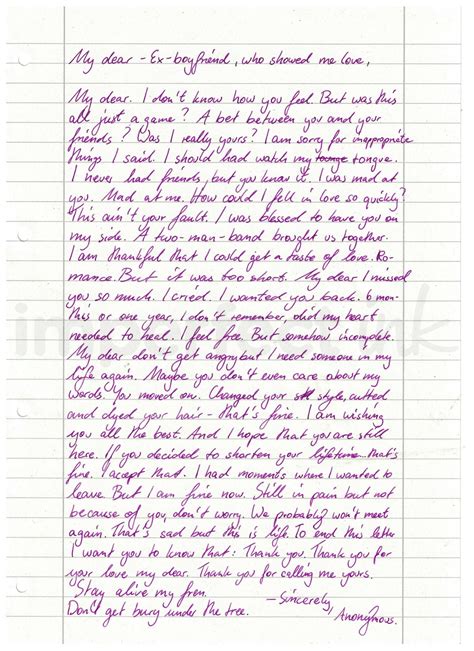 My dear - Ex-boyfriend, who showed me love,
My dear. I don't know how you feel. But was this
all just a game? A bet between you and your
friends? Was I really yours? I am sorry for inappropriate
things I said. I should had watch my tounge tongue.
I never had friends, but you know it. I was mad at
you. Mad at me. How could I fell in love so quickly?
This ain't your fault. I was blessed to have you on
my side. A two-man-band brought us together.
I am thankful that I could get a taste of love. Ro-
mance. But it was too short. My dear I missed
you so much. I cried. I wanted you back. 6 mon-
ths or one year, I don't remember, did my heart
needed to heal. I feel free. But somehow incomplete.
My dear don't get angry but I need someone in my
life again. Maybe you don't even care about my
words. You moved on. Changed your style, cutted
and dyed your hair - that's fine. I am wishing
you all the best. And I hope that you are still
here. If you decided to shorten your lifetime that's
fine. I accept that. I had moments where I wanted to
leave. But I am fine now. Still in pain but not
because of you, don't worry. We probably won't meet
again. That's sad but this is life. To end this letter
I want you to know that: Thank you. Thank you for
your love my dear. Thank you for calling me yours.
Stay alive my fren.
Don't get bury under the tree.
- Sincerely,
Anonymous.